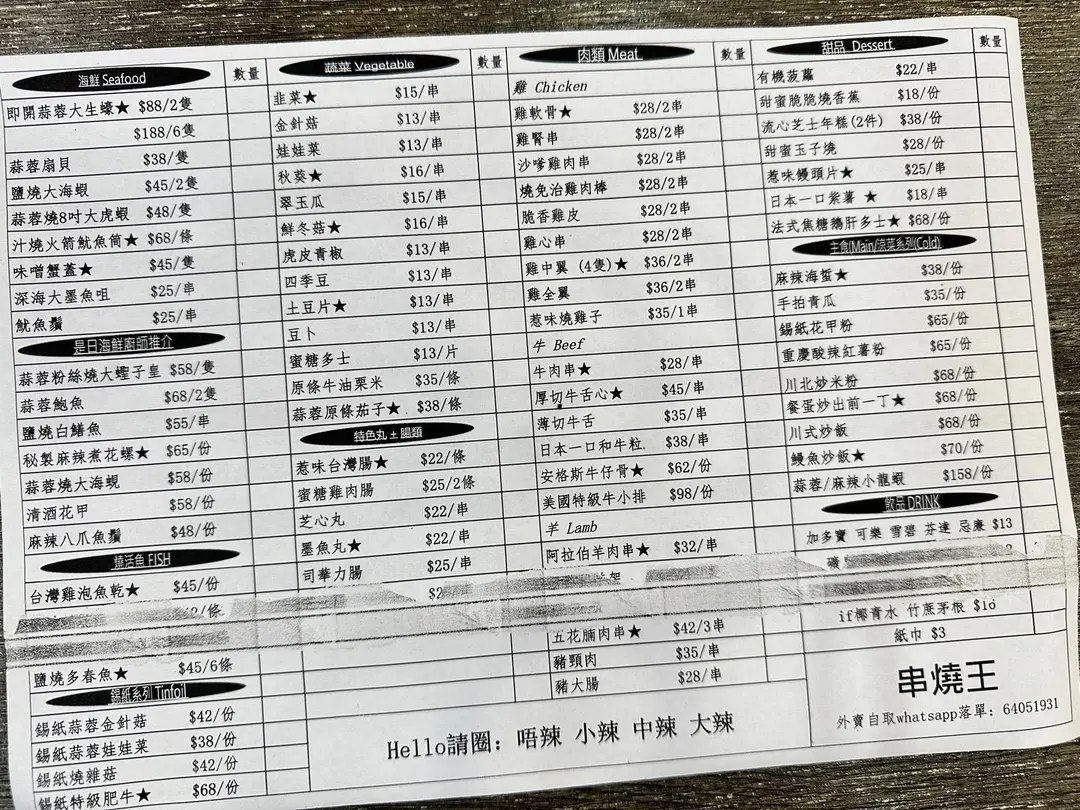 海鮮 Seafood 數量
即開蒜蓉大生蠔★ $88/2隻
$188/6隻
蒜蓉扇貝 $38/隻
鹽燒大海蝦 $45/2隻
蒜蓉燒8吋大虎蝦 $48/隻
汁燒火箭魷魚筒★ $68/條
味噌蟹蓋★ $45/隻
深海大墨魚咀 $25/串
魷魚鬚 $25/串
是日海鮮廚師推介
蒜蓉粉絲燒大蟶子皇 $58/隻
蒜蓉鮑魚 $68/2隻
鹽燒白鱔魚 $55/串
秘製麻辣煮花螺★ $65/份
蒜蓉燒大海蜆 $58/份
清酒花甲 $58/份
麻辣八爪魚鬚 $48/份
燒活魚 FISH
台灣雞泡魚乾★ $45/份
/條
鹽燒多春魚★ $45/6條
錫紙系列 Tinfoil
錫紙蒜蓉金針菇 $42/份
錫紙蒜蓉娃娃菜 $38/份
錫紙燒雜菇 $42/份
錫紙特級肥牛★ $68/份
蔬菜 Vegetable 數量
韭菜★ $15/串
金針菇 $13/串
娃娃菜 $13/串
秋葵★ $16/串
翠玉瓜 $15/串
鮮冬菇★ $16/串
虎皮青椒 $13/串
四季豆 $13/串
土豆片★ $13/串
豆卜 $13/串
蜜糖多士 $13/片
原條牛油栗米 $35/條
蒜蓉原條茄子★ $38/條
特色丸 + 腸類
惹味台灣腸★ $22/條
蜜糖雞肉腸 $25/2條
芝心丸 $22/串
墨魚丸★ $22/串
司華力腸 $25/串
肉類 Meat 數量
雞 Chicken
雞軟骨★ $28/2串
雞腎串 $28/2串
沙嗲雞肉串 $28/2串
燒免治雞肉棒 $28/2串
脆香雞皮 $28/2串
雞心串 $28/2串
雞中翼 (4隻)★ $36/2串
雞全翼 $36/2串
惹味燒雞子 $35/1串
牛 Beef
牛肉串★ $28/串
厚切牛舌心★ $45/串
薄切牛舌 $35/串
日本一口和牛粒 $38/串
安格斯牛仔骨★ $62/份
美國特級牛小排 $98/份
羊 Lamb
阿拉伯羊肉串★ $32/串
五花腩肉串★ $42/3串
豬頸肉 $35/串
豬大腸 $28/串
甜品 Dessert 數量
有機菠蘿 $22/串
甜蜜脆脆燒香蕉 $18/份
流心芝士年糕(2件) $38/份
甜蜜玉子燒 $28/份
惹味饅頭片★ $25/串
日本一口紫薯 ★ $18/串
法式焦糖鵝肝多士★ $68/份
主食(Main/涼菜系列(Cold)
麻辣海蜇★ $38/份
手拍青瓜 $35/份
錫紙花甲粉 $65/份
重慶酸辣紅薯粉 $65/份
川北炒米粉 $68/份
餐蛋炒出前一丁★ $68/份
川式炒飯 $68/份
鰻魚炒飯★ $70/份
蒜蓉/麻辣小龍蝦 $158/份
飲品 DRINK
加多寶 可樂 雪碧 芬達 忌廉 $13
if椰青水 竹蔗茅根 $16
紙巾 $3
Hello請圈: 唔辣 小辣 中辣 大辣
串燒王
外賣自取whatsapp落單: 64051931